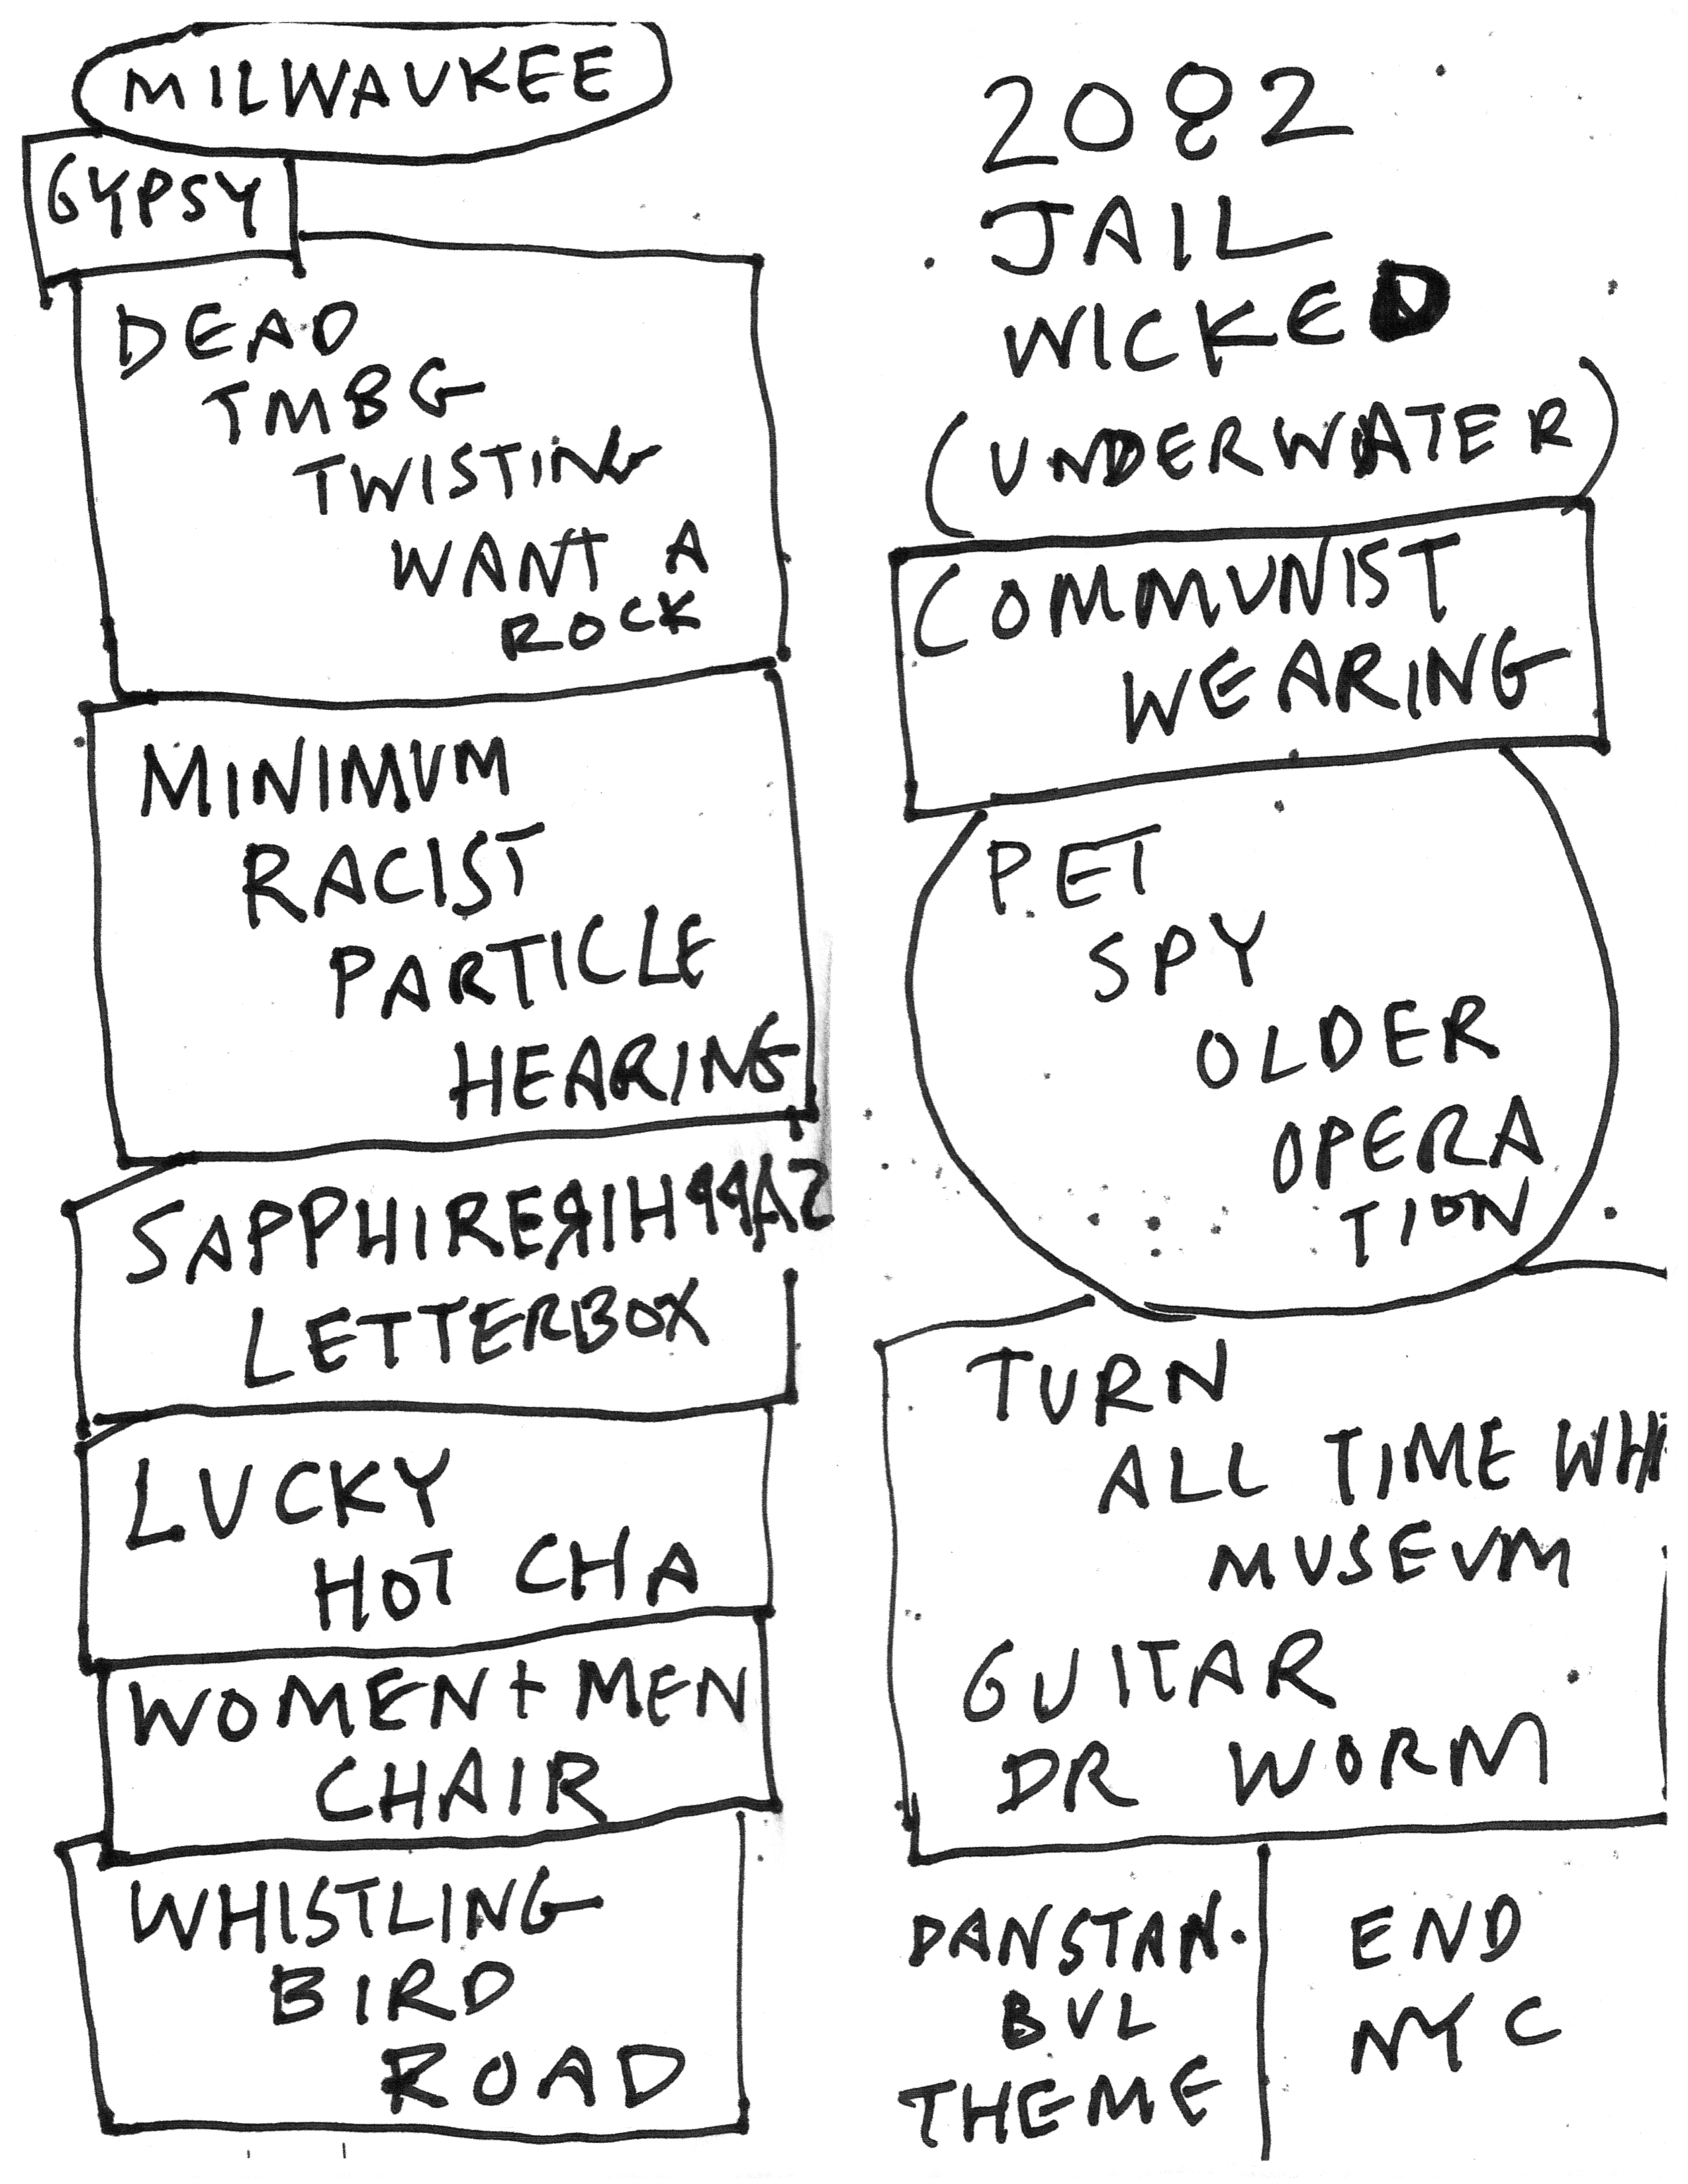 MILWAUKEE
GYPSY
DEAD
TMBG
TWISTING
WANT A
ROCK
MINIMUM
RACIST
PARTICLE
HEARING
SAPPHIREЯIHqqAS
LETTERBOX
LUCKY
HOT CHA
WOMEN + MEN
CHAIR
WHISTLING
BIRD
ROAD
2082
JAIL
WICKED
(UNDERWATER)
COMMUNIST
WEARING
PET
SPY
OLDER
OPERA
TION
TURN
ALL TIME WHI
MUSEUM
GUITAR
DR WORM
DANSTAN.
BUL
THEME
END
NYC